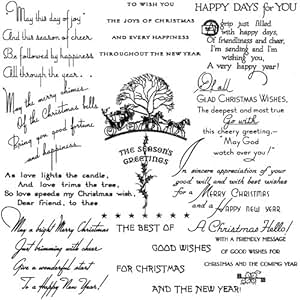 May this day of joy
And this season of cheer
Be followed by happiness
All through the year . . .
TO WISH YOU
THE JOYS OF CHRISTMAS
AND EVERY HAPPINESS
THROUGHOUT THE NEW YEAR
HAPPY DAYS for YOU
A grip just filled
with happy days,
Of friendliness and cheer,
I'm sending and I'm
wishing you,
A very happy year!
May the merry chimes
Of the Christmas bells
Bring you good fortune
and happiness.
THE SEASON'S
GREETINGS
Of all
GLAD CHRISTMAS WISHES,
The deepest and most true
Go with
this cheery greeting—
May God
watch over you!
As love lights the candle,
And love trims the tree,
So love speeds my Christmas wish,
Dear friend, to thee
In sincere appreciation of your
good will and with best wishes
for a MERRY CHRISTMAS
and a HAPPY NEW YEAR
May a bright Merry Christmas
Just brimming with cheer
Give a wonderful start
To a Happy New Year!
THE BEST OF
GOOD WISHES
FOR CHRISTMAS
AND THE NEW YEAR!
A Christmas Hello!
WITH A FRIENDLY MESSAGE
OF GOOD WISHES FOR
CHRISTMAS AND THE COMING YEAR